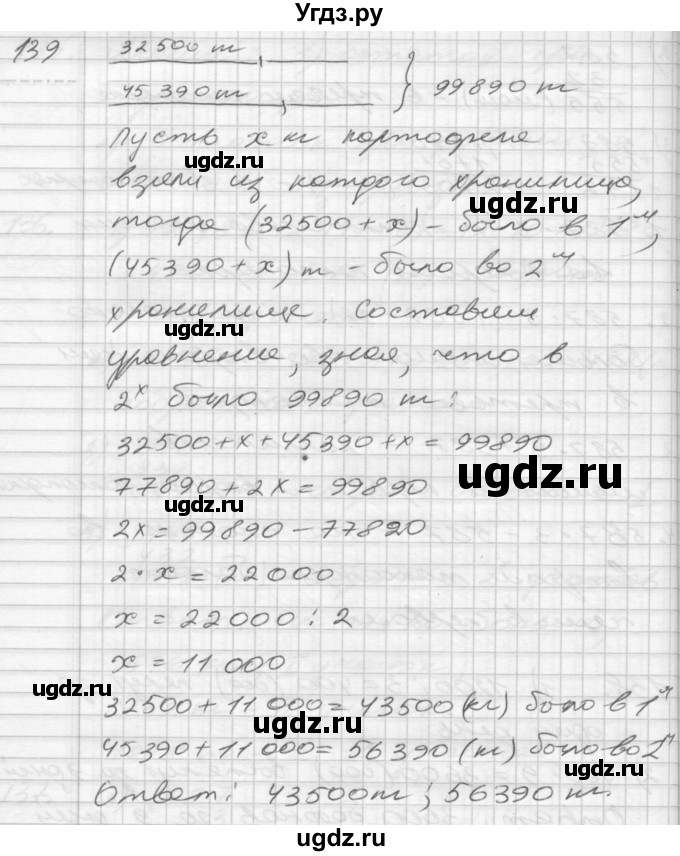 Угдз.ру
139
32500 т
45 390 т } 99890 т
Пусть x кг картофеля
ugdz.ru ugdz.ru
взяли из каждого хранилища,
тогда (32500 + x) - было в 1м,
(45390 + x) т - было во 2м
хранилище. Составим
ugdz.ru
уравнение, зная, что в
2х было 99890 т:
32500 + x + 45390 + x = 99890
ugdz.ru
77890 + 2x = 99890
2x = 99890 - 77820
2 · x = 22000
x = 22000 : 2
x = 11 000
32500 + 11 000 = 43500 (кг) было в 1м
ugdz.ru
45390 + 11 000 = 56390 (т) было во 2м
ugdz.ru
Ответ: 43500 т; 56390 т.
ugdz.ru